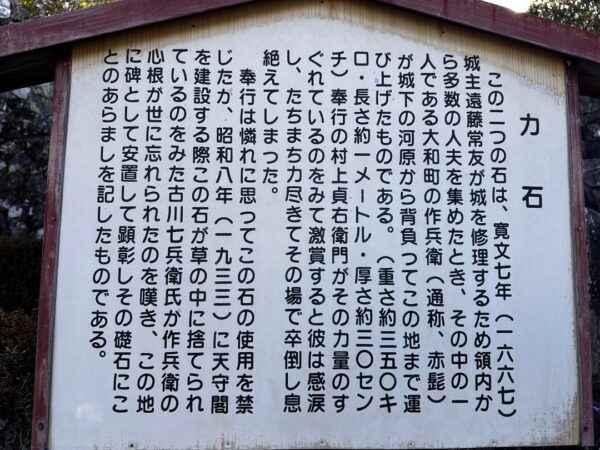 力石
この二つの石は、寛文七年（一六六七）
城主遠藤常友が城を修理するため領内か
ら多数の人夫を集めたとき、その中の一
人である大和町の作兵衛（通称、赤髭）
が城下の河原から背負つてこの地まで運
び上げたものである。（重さ約三五〇キ
ロ・長さ約一メートル・厚さ約三〇セン
チ）奉行の村上貞右衛門がその力量のす
ぐれているのをみて激賞すると彼は感涙
し、たちまち力尽きてその場で卒倒し息
絶えてしまった。
奉行は憐れに思ってこの石の使用を禁
じたが、昭和八年（一九三三）に天守閣
を建設する際この石が草の中に捨てられ
ているのをみた古川七兵衛氏が作兵衛の
心根が世に忘れられたのを嘆き、この地
に碑として安置して顕彰しその礎石にこ
とのあらましを記したものである。